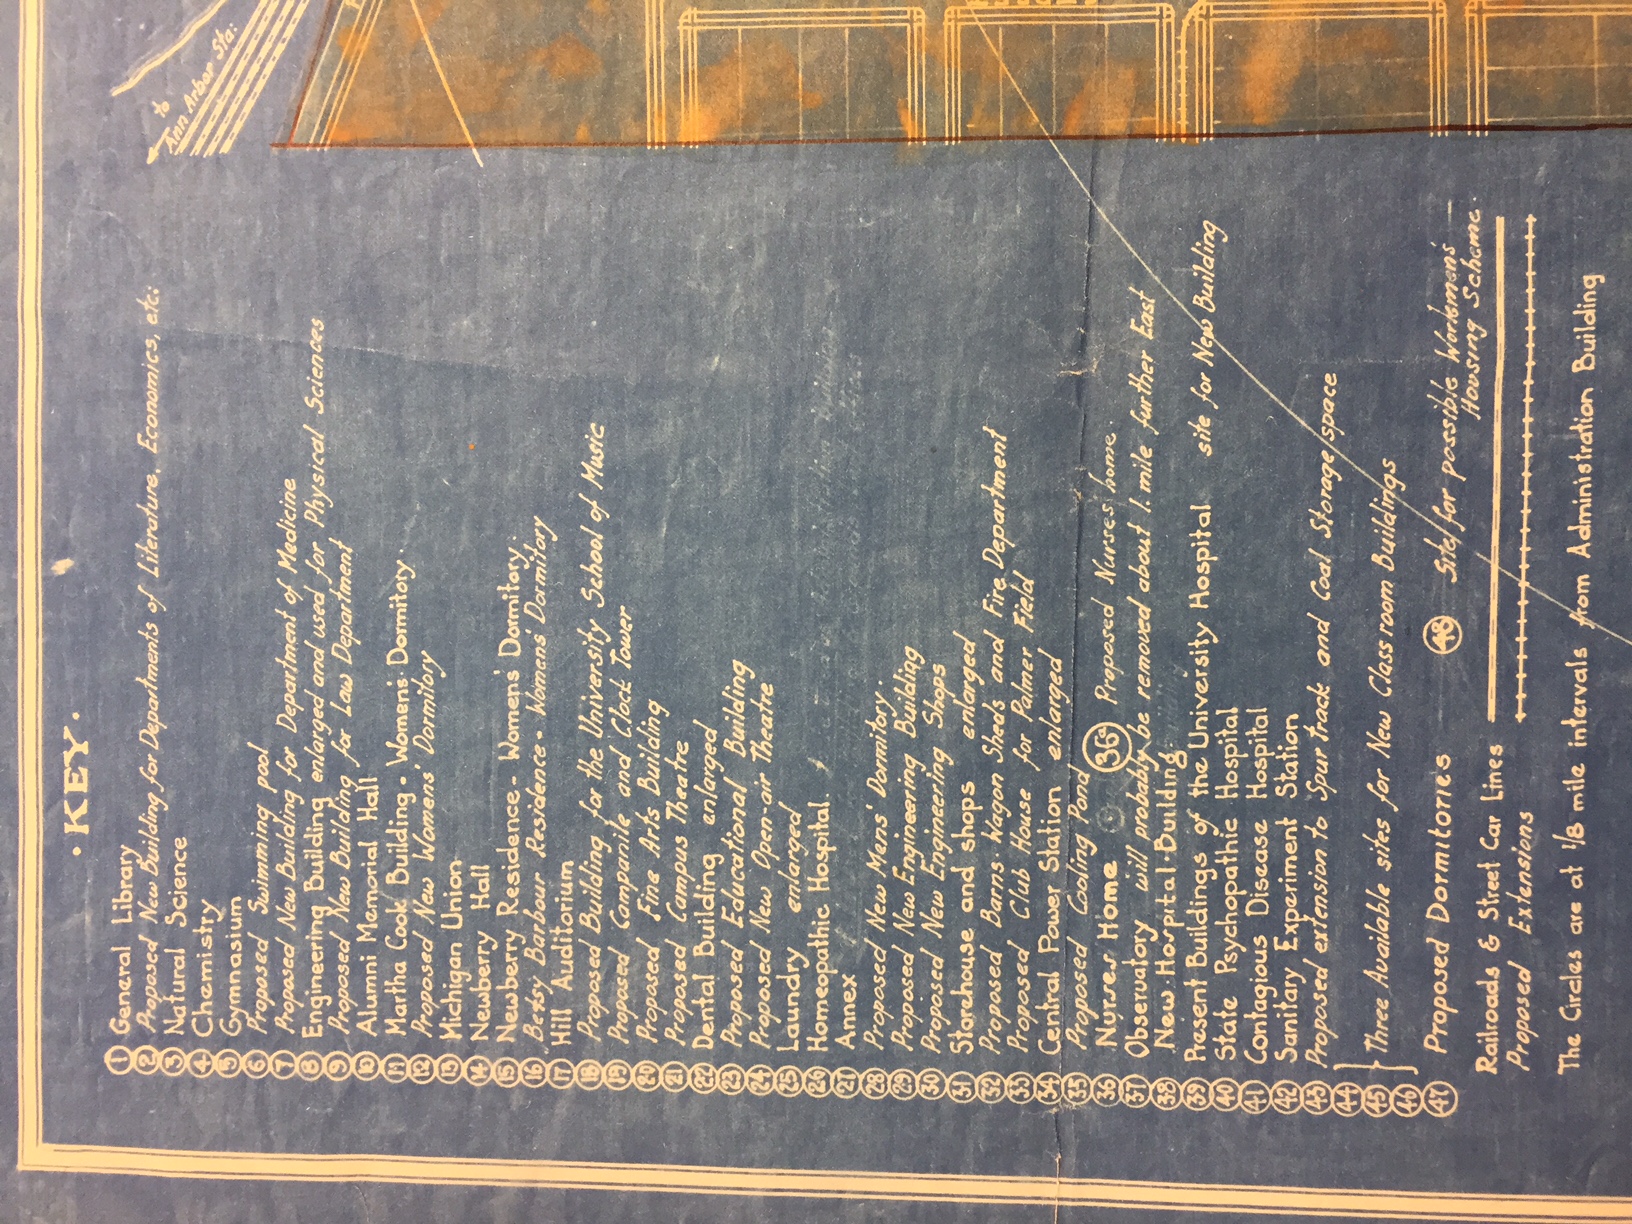 · KEY ·
1 General Library
2 Proposed New Building for Departments of Literature, Economics, etc:
3 Natural Science
4 Chemistry
5 Gymnasium
6 Proposed Swimming pool
7 Proposed New Building for Department of Medicine
8 Engineering Building enlarged and used for Physical Sciences
9 Proposed New Building for Law Department
10 Alumni Memorial Hall
11 Martha Cook Building - Womens' Dormitory.
12 Proposed New Womens' Dormitory
13 Michigan Union
14 Newberry Hall
15 Newberry Residence - Womens' Dormitory.
16 Betsy Barbour Residence - Womens' Dormitory
17 Hill Auditorium
18 Proposed Building for the University School of Music
19 Proposed Campanile and Clock Tower
20 Proposed Fine Arts Building
21 Proposed Campus Theatre
22 Dental Building enlarged
23 Proposed Educational Building
24 Proposed New Open-air Theatre
25 Laundry enlarged
26 Homeopathic Hospital.
27 Annex
28 Proposed New Mens' Dormitory.
29 Proposed New Engineering Building
30 Proposed New Engineering Shops
31 Storehouse and shops enlarged
32 Proposed Barns. Wagon Sheds and Fire Department
33 Proposed Club House for Palmer Field
34 Central Power Station enlarged
35 Proposed Cooling Pond
36 Nurses Home 36a Proposed Nurses' home.
37 Observatory will probably be removed about 1. mile further East
38 New·Hospital·Building.
39 Present Buildings of the University Hospital site for New Building
40 State Psychopathic Hospital
41 Contagious Disease Hospital
42 Sanitary Experiment Station
43 Proposed extension to Spur track and Coal Storage space
44
45 Three Available sites for New Class room Buildings
46
47 Proposed Dormitories 48 Site for possible Workmen's
Housing Scheme.
Railroads & Street Car Lines
Proposed Extensions
The Circles are at 1/8 mile intervals from Administration Building
to
Ann Arbor Sta: